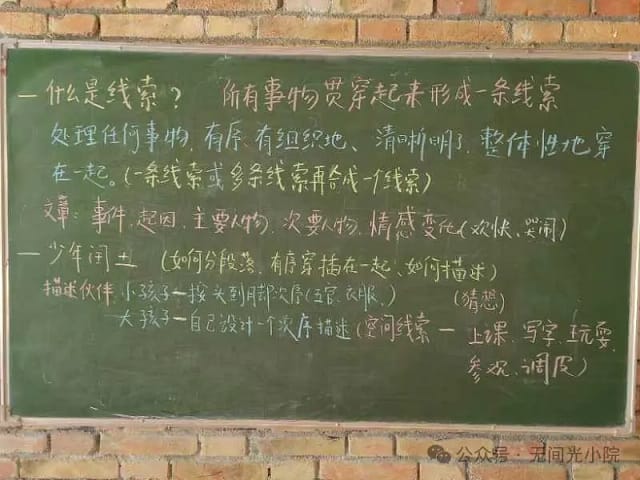 一 什么是线索? 所有事物贯穿起来形成一条线索
处理任何事物,有序、有组织地、清晰明了,整体性地穿
在一起。(一条线索或多条线索再合成一个线索)
文章:事件、起因、主要人物、次要人物、情感变化(欢快、哭闹)
一 少年闰土 (如何分段落、有序穿插在一起、如何描述)
描述伙伴 小孩子一按头到脚次序(五官、衣服、) (猜想)
大孩子一自己设计一个次序描述(空间线索一 上课、写字、玩耍、
参观、调皮)
公众号·无间光小院